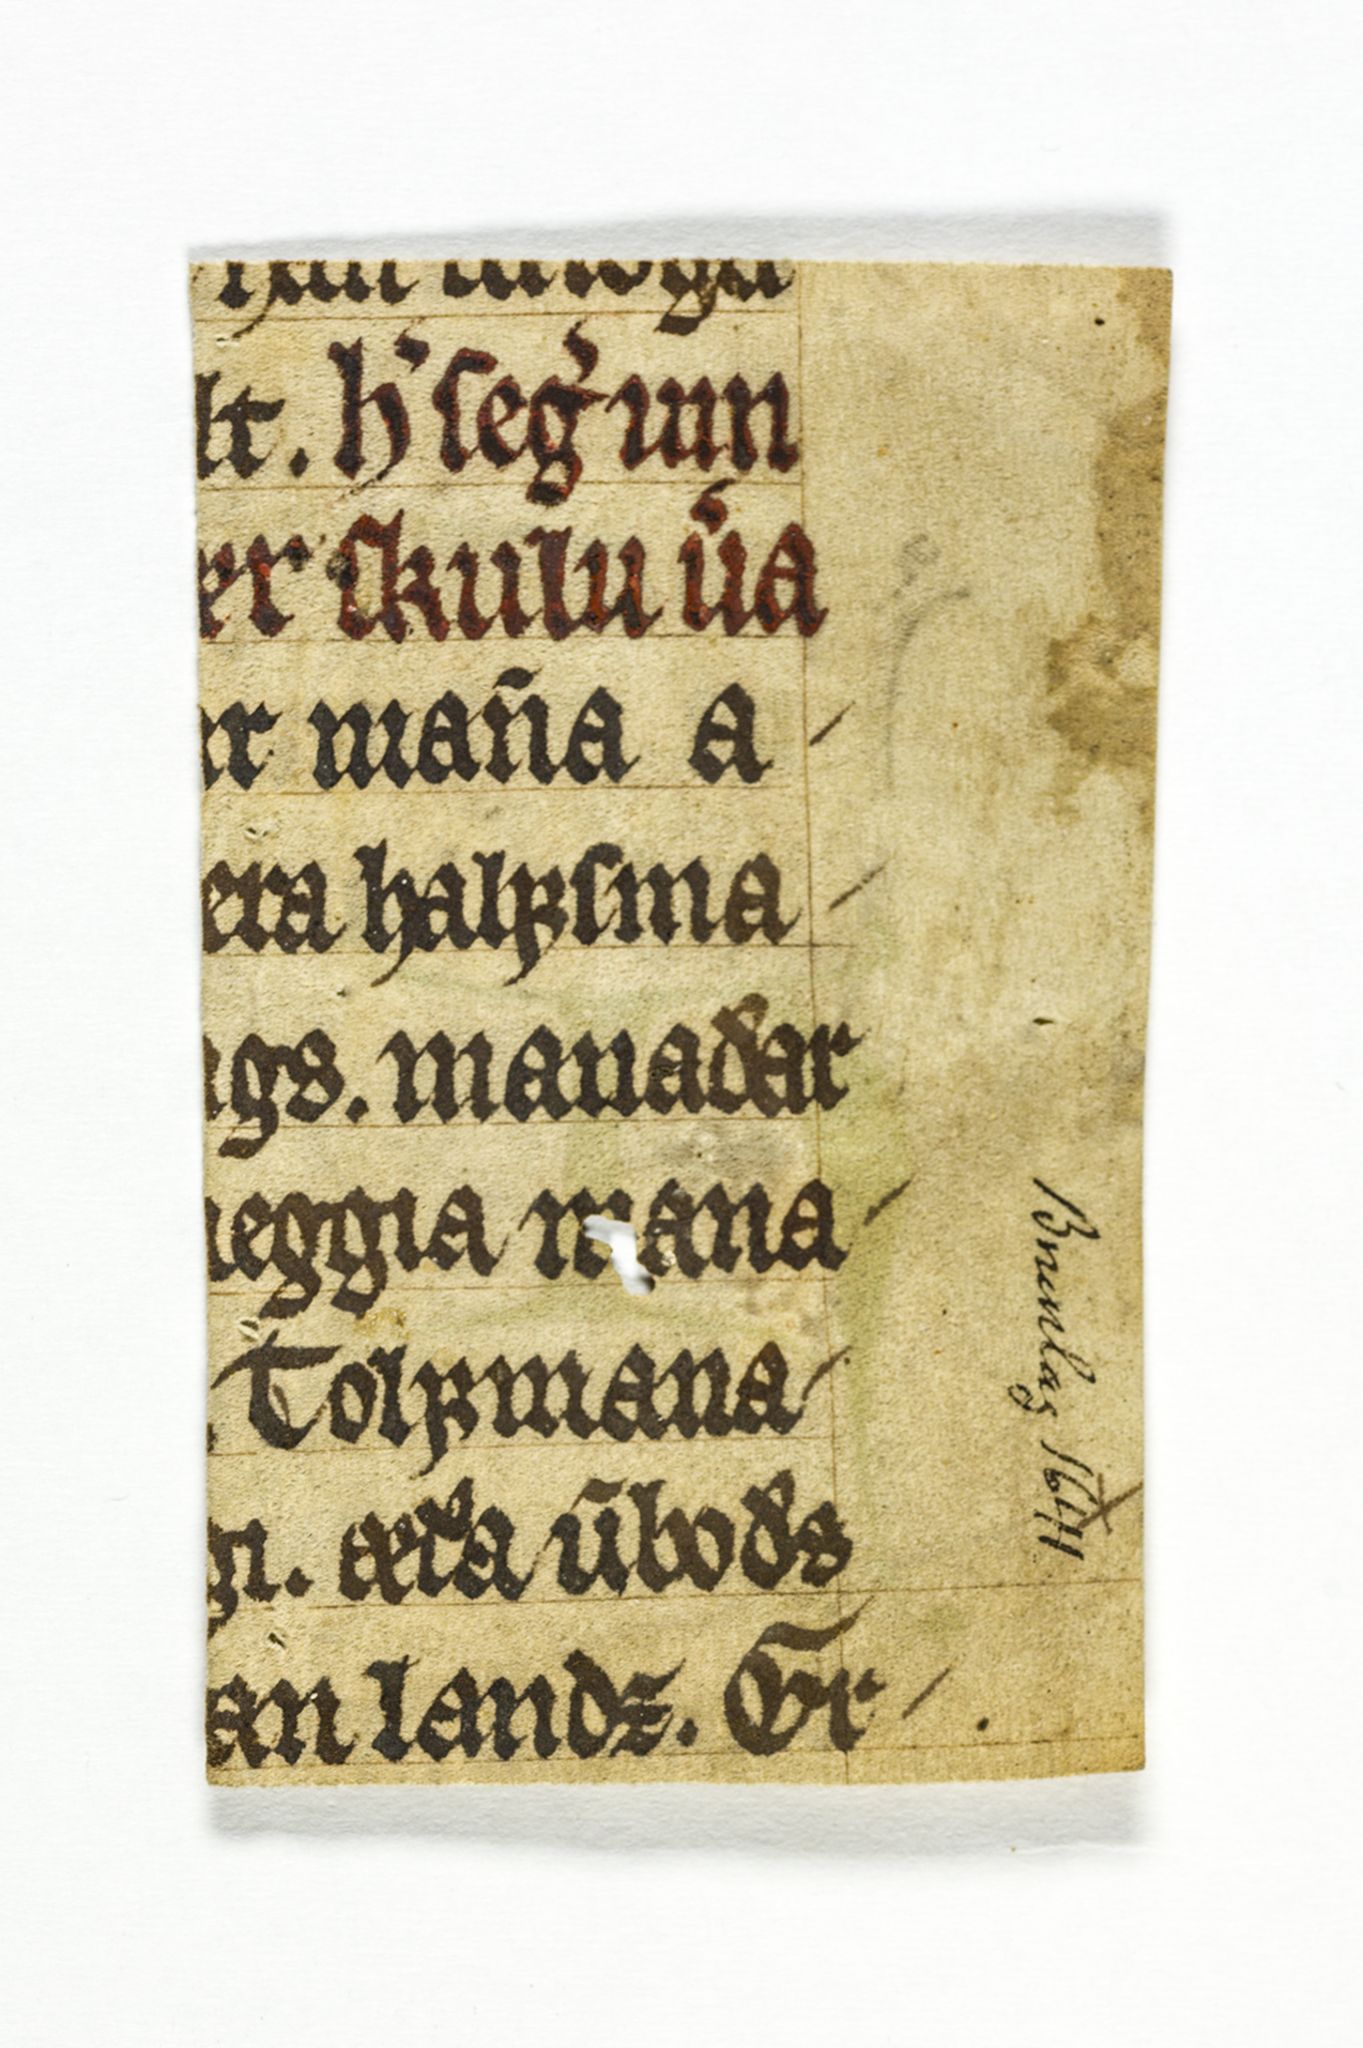 lt. h' seg' um
er skulu u᷎a
ar man̄a a
era halꝼsma
ngs. manaðar
ueggia mana
. Tolꝼmana
gi. æða u̅boðs
an landz. Gr
Brunlag 1644